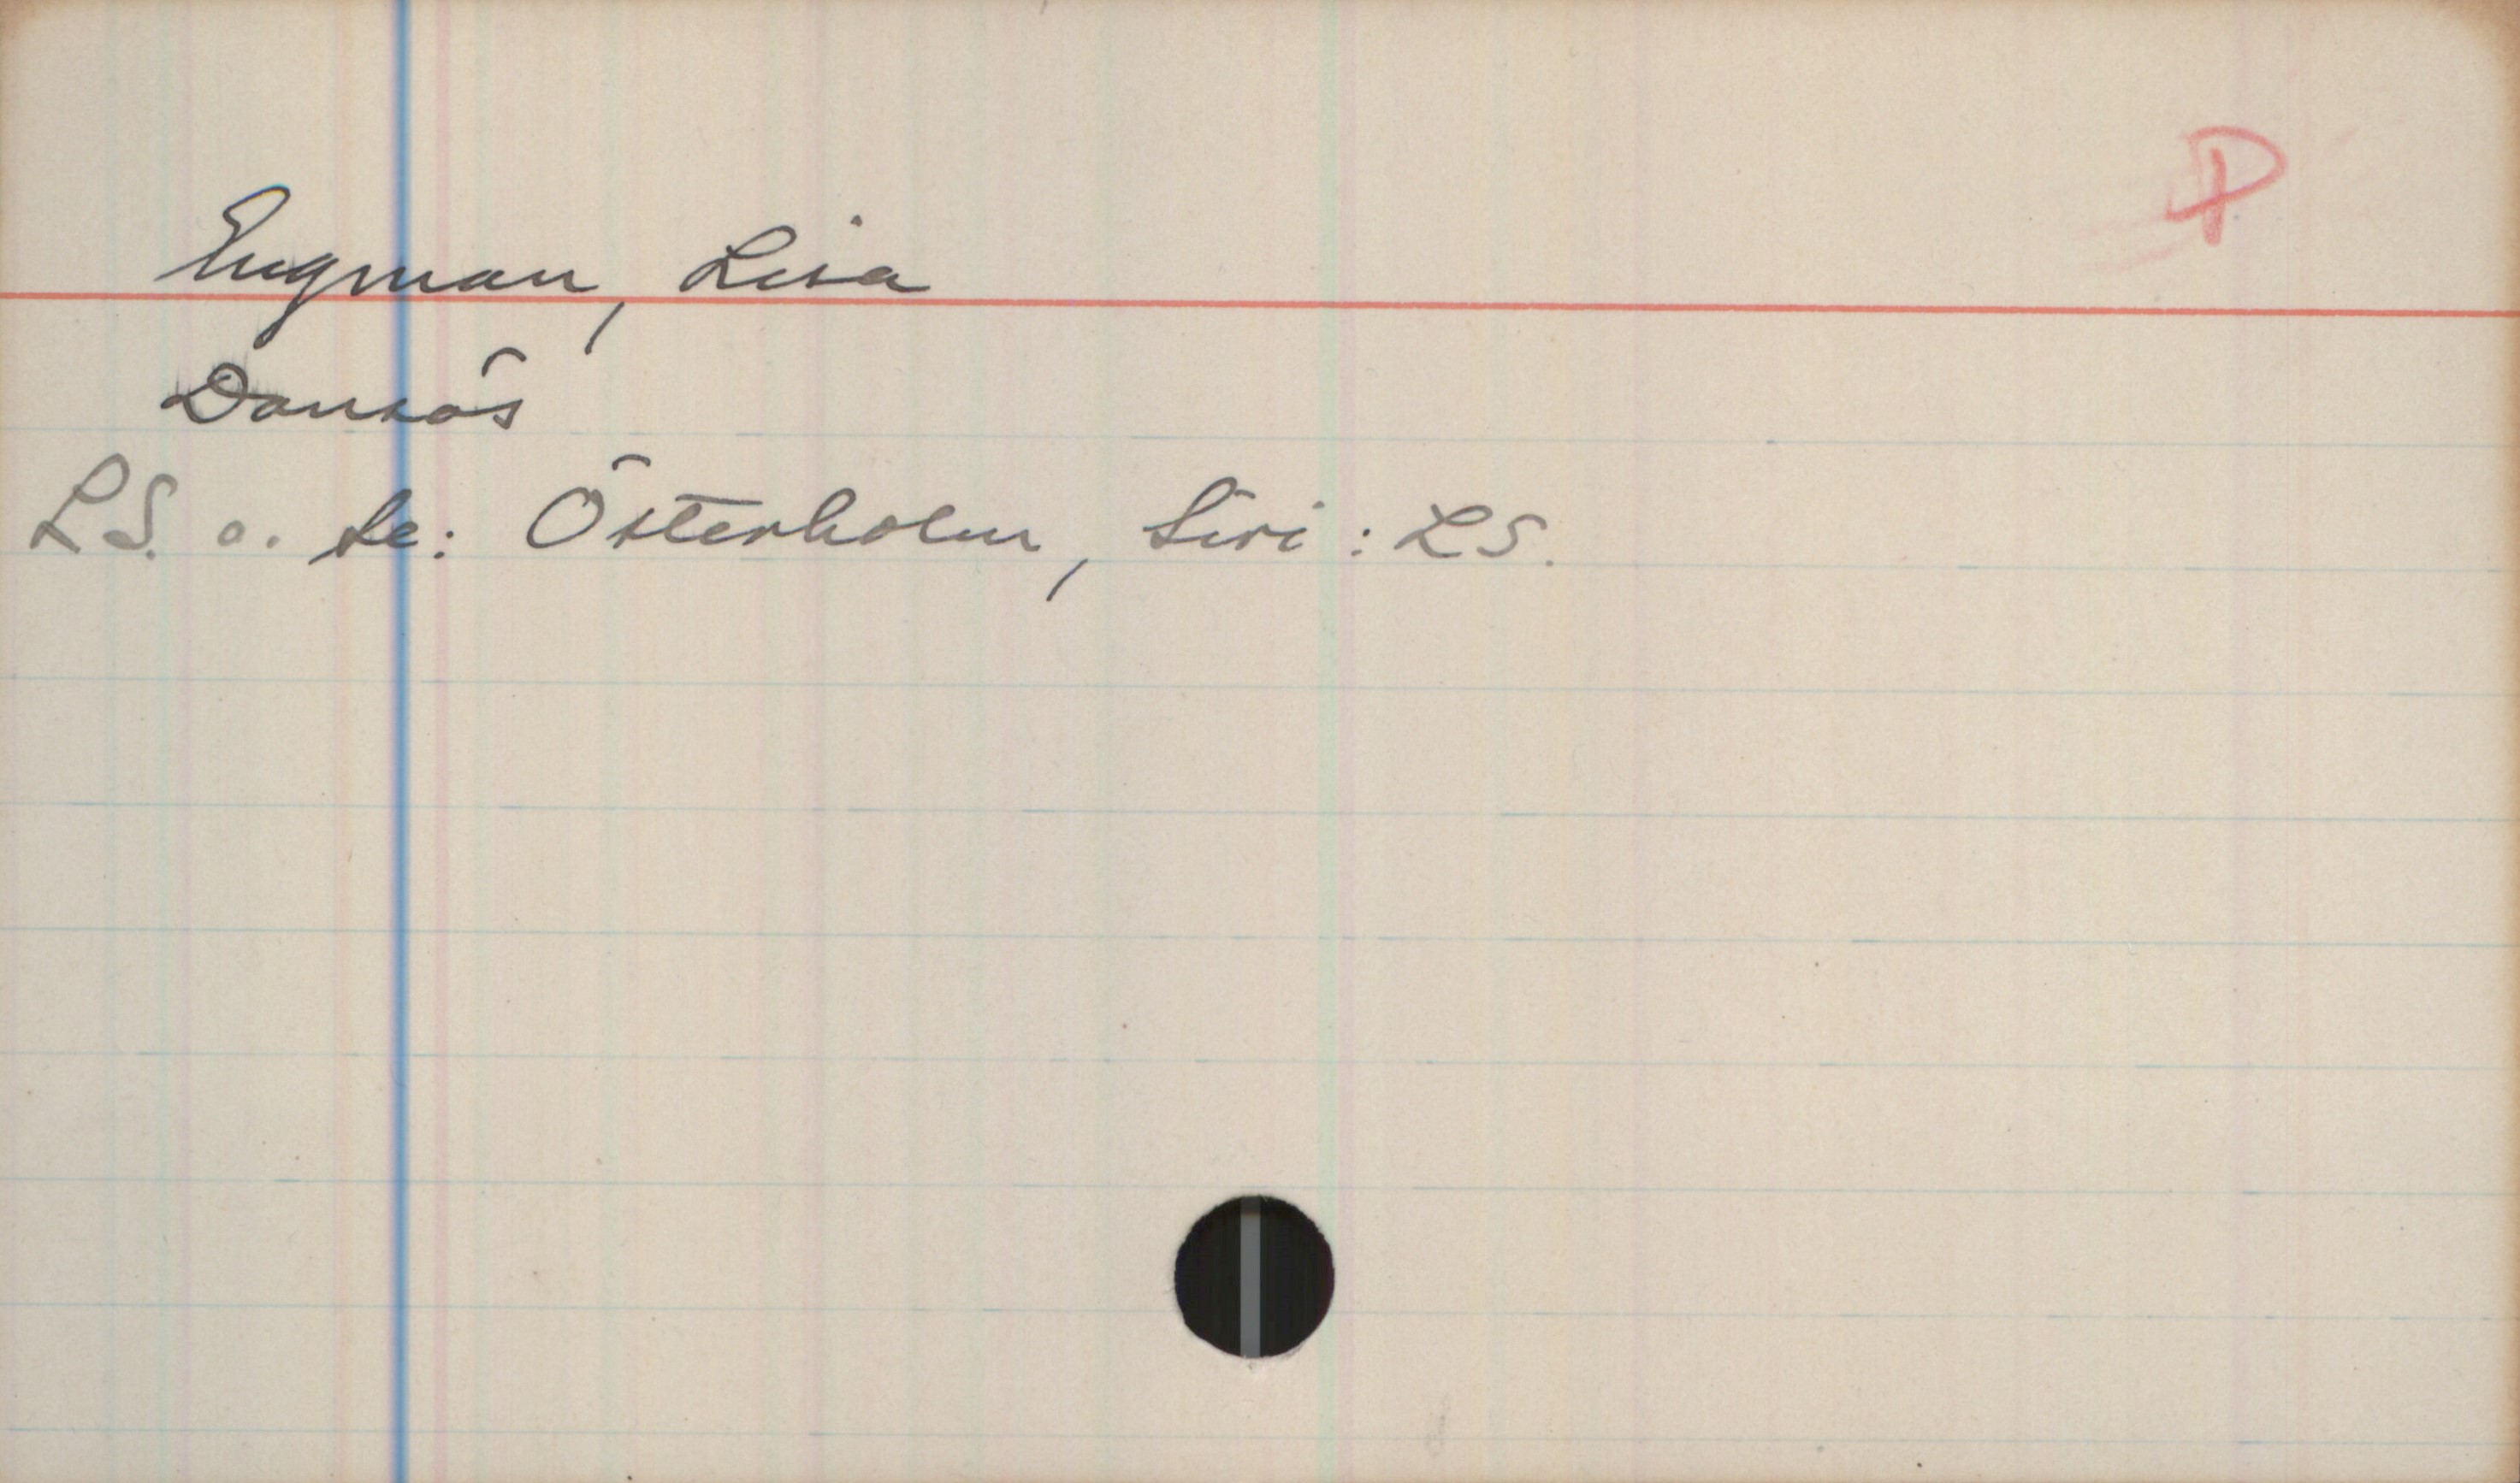 P
Engman, Lisa
Dansös
LS. o. Se: Österholm, Siri : LS.